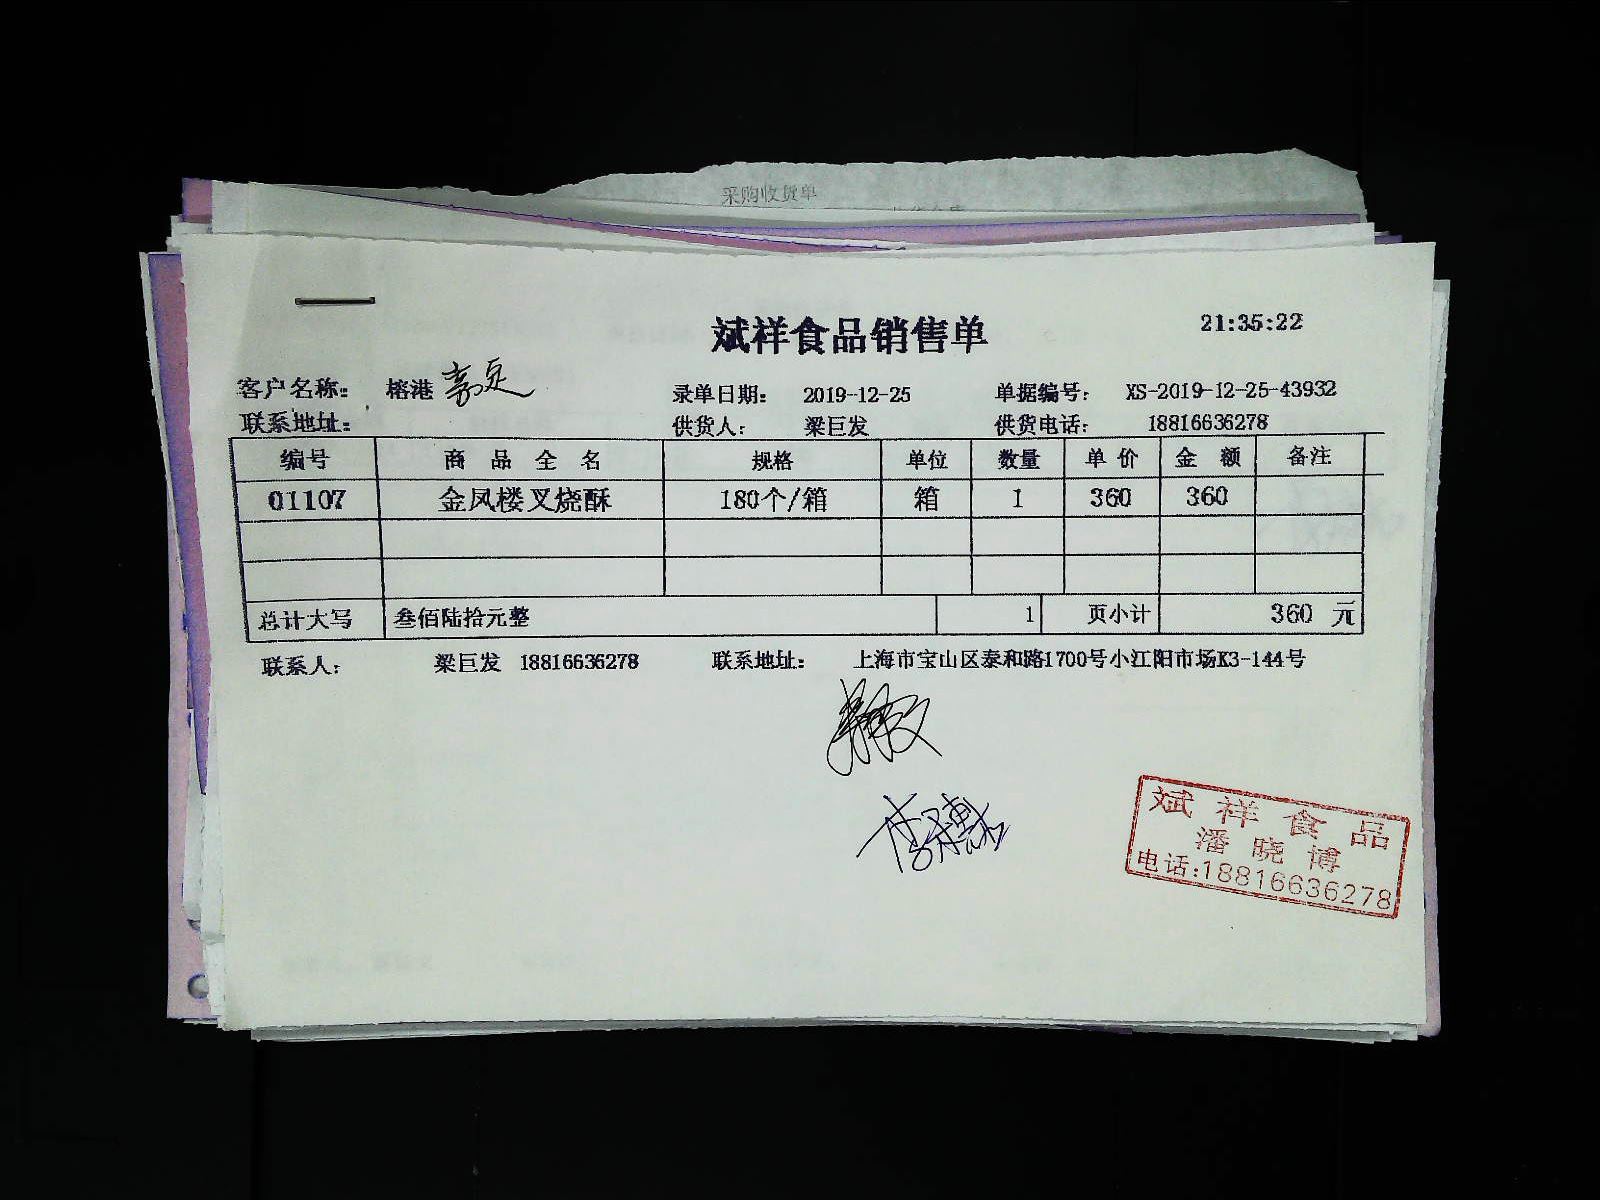 采购收货单
斌祥食品销售单
21:35:22
客户名称: 榕港 录单日期: 2019-12-25 单据编号: XS-2019-12-25-43932
联系地址: 供货人: 梁巨发 供货电话: 18816636278
编号 商品全名 规格 单位 数量 单价 金额 备注
01107 金凤楼叉烧酥 180个/箱 箱 1 360 360
总计大写 叁佰陆拾元整 1 页小计 360 元
联系人: 梁巨发 18816636278 联系地址: 上海市宝山区泰和路1700号小江阳市场K3-144号
斌祥食品
潘晓博
电话:18816636278